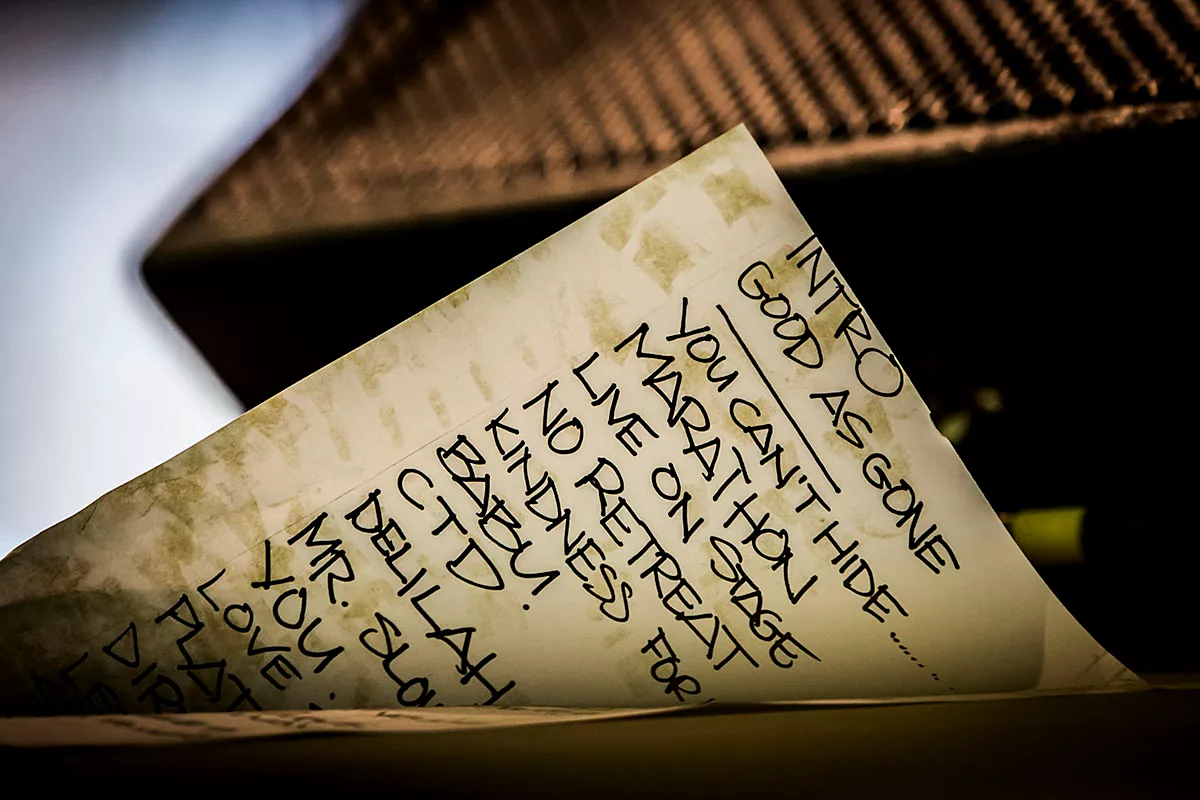 INTRO
GOOD AS GONE
YOU CAN'T HIDE.....
MARATHON
LIVE ON STAGE
NO RETREAT
KINDNESS FOR
BABY.
CTD
DELILAH
MR. SLO
YOU
LOVE
PLAT
DIR
LE